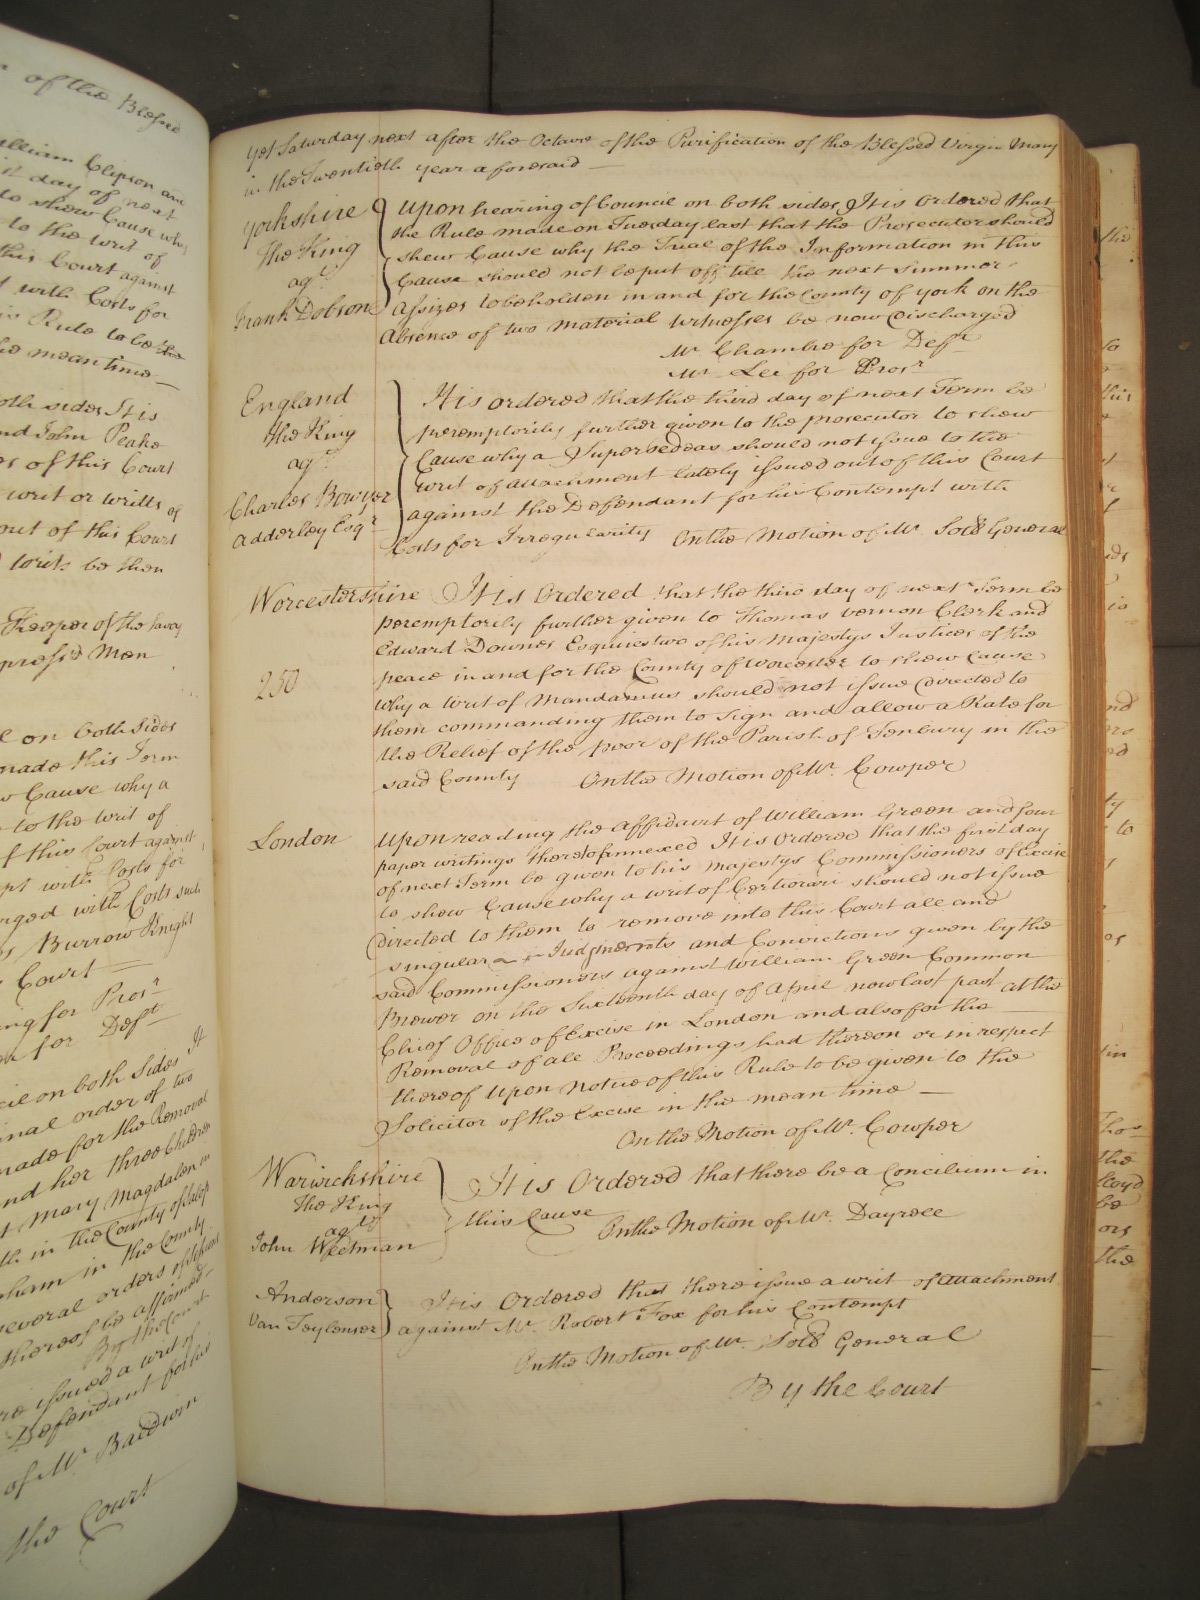 of the Blessed
William Clipson and
day of next
to shew Cause why
to the writ of
this Court against
with Costs for
Rule to be
the mean time
both sides It is
and John Peake
of this Court
writ or writts of
out of this Court
writs be then
Keeper of the Savoy
impress'd Men
on both sides
made this Term
Cause why a
to the writ of
this Court against
with Costs for
discharged with Costs such
Burrow Knight
Court
for Prosr
for Deft
on both sides It
order of two
made for the Removal
and her three Children
Mary Magdalen in
in the County of Salop
in the County
several orders of Sessions
thereof be affirmed
By the Court
issued a writ of
Defendant for his
of Mr Baldwin
the Court
yet Saturday next after the Octave of the Purification of the Blessed Virgin Mary
in the Twentieth year aforesaid —
Yorkshire
The King
agt
Frank Dobson
Upon hearing of Council on both sides It is Ordered that
the Rule made on Tuesday last that the Prosecutor should
shew Cause why the Trial of the Information in this
Cause should not be put off till the next Summer
Assizes to be holden in and for the County of York on the
Absence of two material Witnesses be now Discharged
Mr Chambre for Deft
Mr Lee for Prosr
England
the King
agt
Charles Bowyer
Adderley Esqr
It is ordered that the third day of next Term be
peremptorily further given to the prosecutor to shew
Cause why a Supersedeas should not issue to the
writ of attachment lately issued out of this Court
against the Defendant for his Contempt with
Costs for Irregularity On the Motion of Mr Solr General
Worcestershire
250
It is Ordered that the third day of next Term be
peremptorily further given to Thomas Vernon Clerk and
Edward Downes Esquires two of his Majestys Justices of the
peace in and for the County of Worcester to shew Cause
why a Writ of Mandamus should not issue Directed to
them commanding them to Sign and allow a Rate for
the Relief of the poor of the Parish of Tenbury in the
said County On the Motion of Mr. Cowper
London
Upon reading the Affidavit of William Green and four
paper writings thereto annexed It is Ordered that the first day
of next Term be given to his Majestys Commissioners of Excise
to shew Cause why a writ of Certiorari should not issue
Directed to them to remove into this Court all and
singular Judgments and Convictions given by the
said Commissioners against William Green Common
Brewer on the Sixteenth day of April now last past at the
Chief Office of Excise in London and also for the
Removal of all Proceedings had thereon or in respect
thereof Upon Notice of this Rule to be given to the
Solicitor of the Excise in the mean time —
On the Motion of Mr. Cowper
Warwickshire
The King
agt
John Weetman
It is Ordered that there be a Concilium in
this Cause On the Motion of Mr. Dayrell
Anderson
Van Teylenser
It is Ordered that there issue a writ of attachment
against Mr. Robert Fox for his Contempt
On the Motion of Mr. Solr General
By the Court